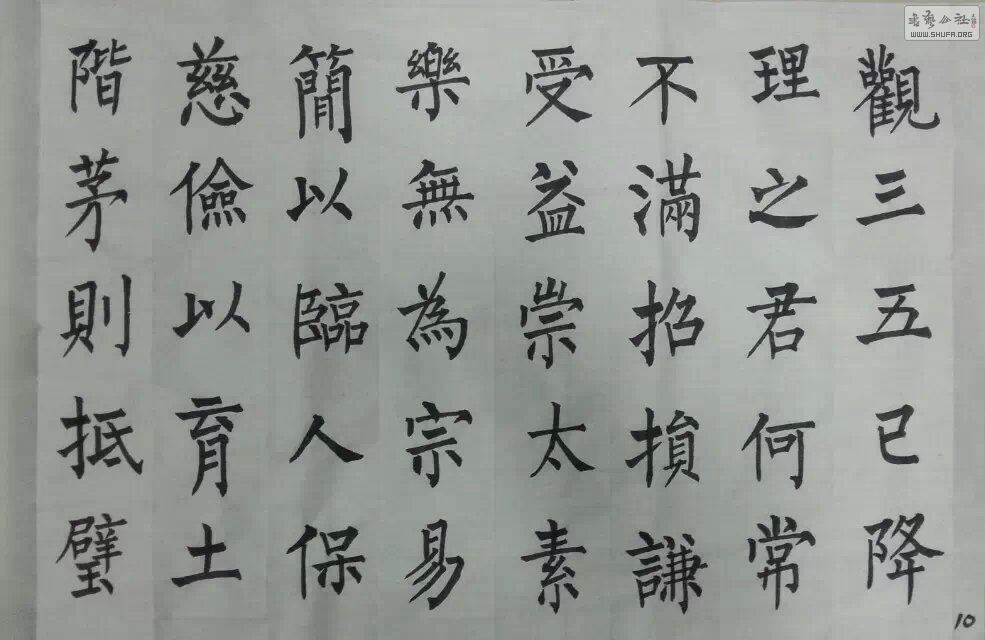 觀三五已降
理之君何常
不滿招損謙
受益崇太素
樂無為宗易
簡以臨人保
慈儉以育土
階茅則抵璧
10
書藝公社
WWW.SHUFA.ORG